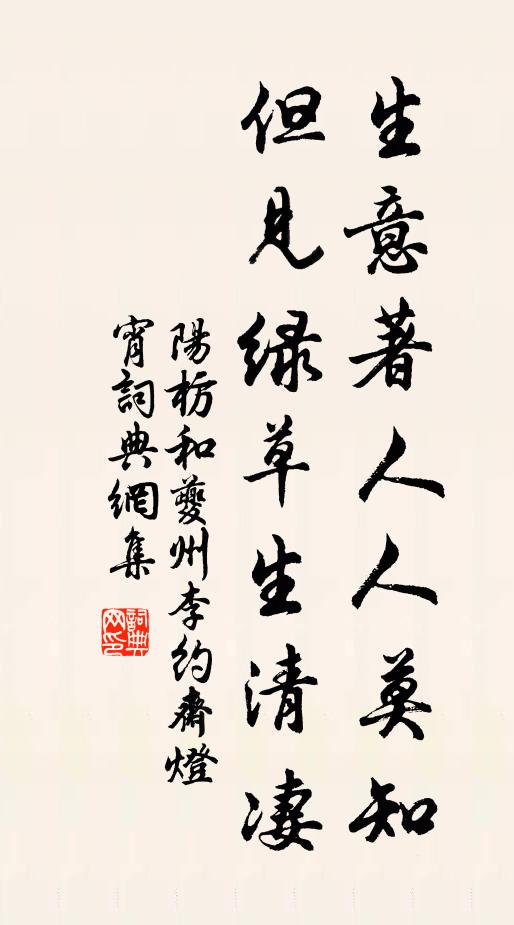 生意著人人莫知
但見緑草生清凄
陽枋和夔州李約齋燈
宵詞典網集
詞典網印